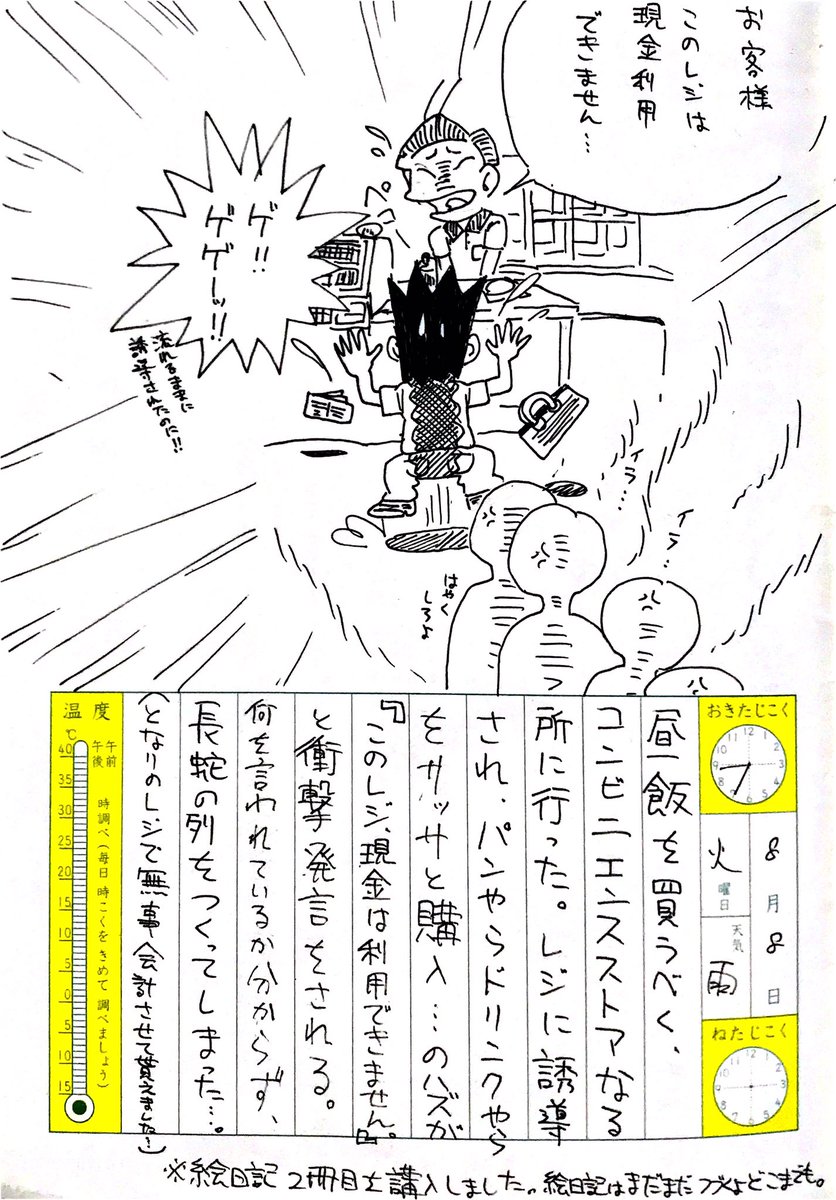 お客様
このレジは
現金利用
できません…
ペコ
ゲ!!
ゲゲーッ!!
流れるままに
誘導されたのに!!
イラ…
イラ…
はやく
しろよ
おきたじこく
8月8日
火曜日
天気 雨
ねたじこく
昼飯を買うべく、
コンビニエンスストアなる
所に行った。レジに誘導
され、パンやらドリンクやら
をササッと購入…のハズが
『このレジ、現金は利用できません。』
と衝撃発言をされる。
何を言われているか分からず、
長蛇の列をつくってしまった…。
(となりのレジで無事会計させて貰えました〜)
温度
℃
午前
午後
時調べ(毎日時こくをきめて調べましょう)
40
35
30
25
20
15
10
5
0
5
10
15
※絵日記2冊目を購入しました。絵日記はまだまだつづくよどこまでも。